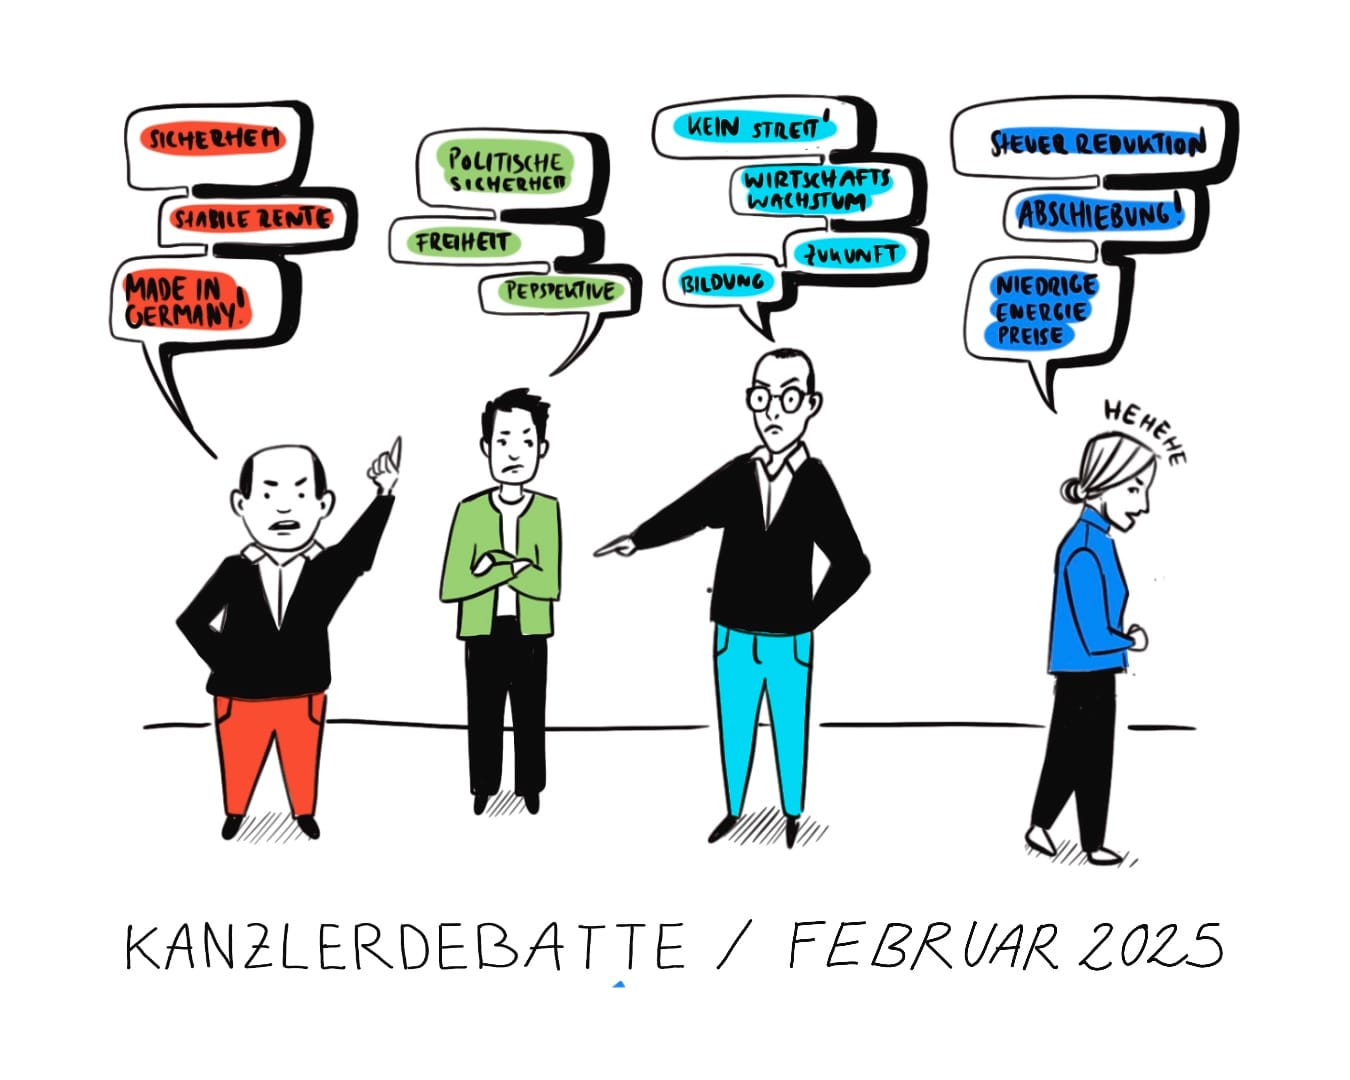 SICHERHEIT
STABILE RENTE
MADE IN
GERMANY!
POLITISCHE
SICHERHEIT
FREIHEIT
PEPSPEKTIVE
KEIN STREIT!
WIRTSCHAFTS
WACHSTUM
ZUKUNFT
BILDUNG
STEUER REDUKTION
ABSCHIEBUNG!
NIEDRIGE
ENERGIE
PREISE
HEHEHE
KANZLERDEBATTE / FEBRUAR 2025